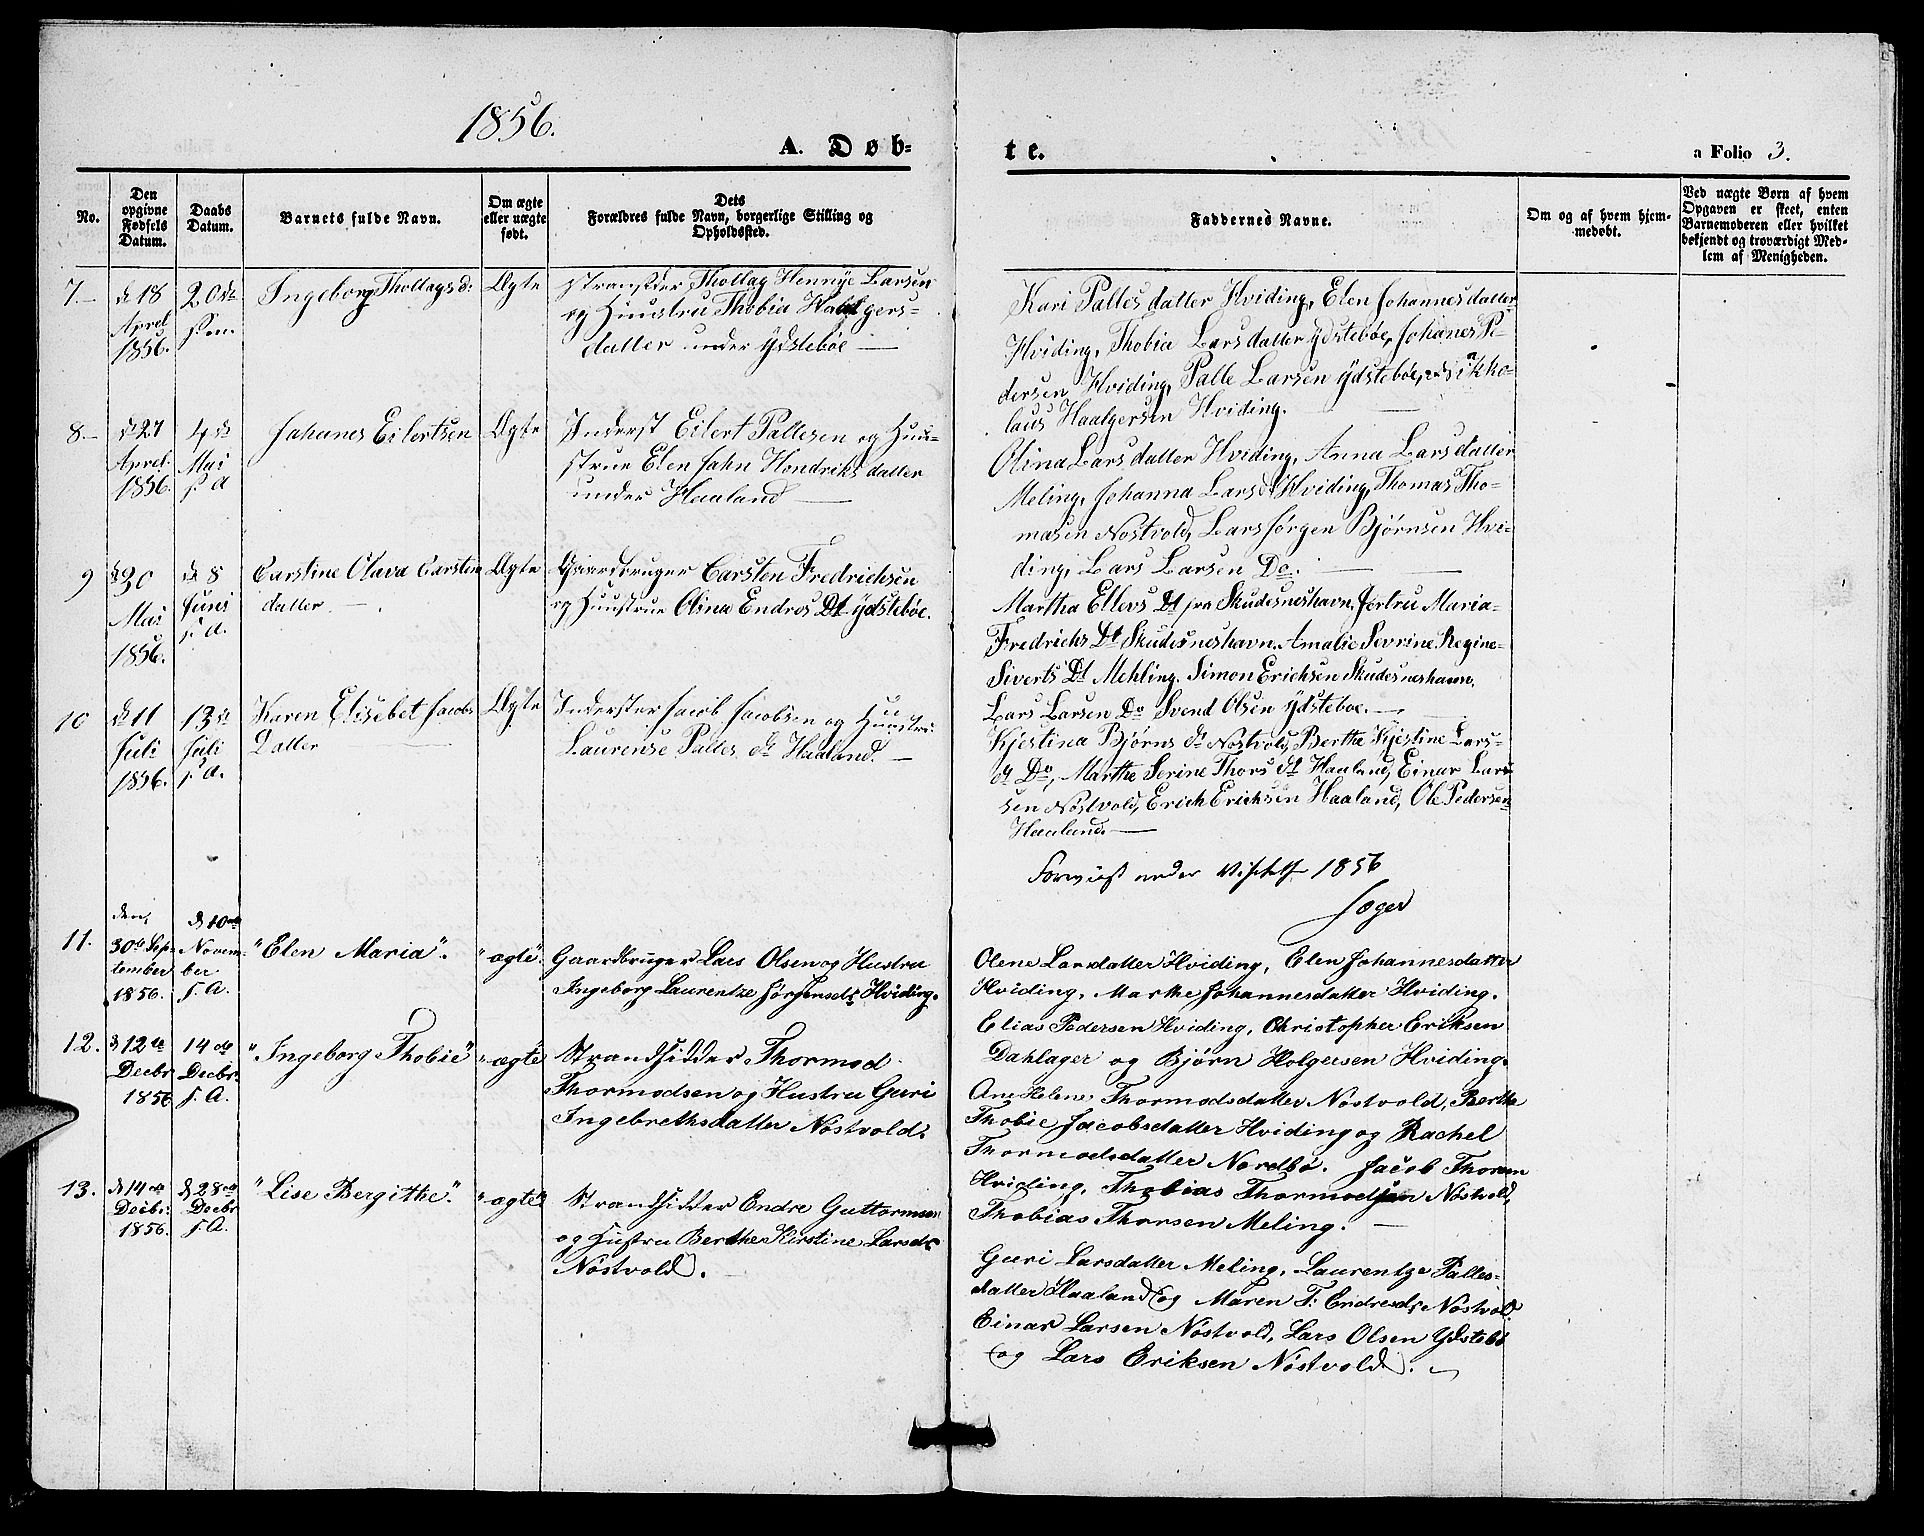 1856.
A. Døb-
te.
a Folio 3.
No.
Den
opgivne
Fødsels
Datum.
Daabs
Datum.
Barnets fulde Navn.
Om ægte
eller uægte
født.
Dets
Forældres fulde Navn, borgerlige Stilling og
Opholdssted.
Faddernes Navne.
Om og af hvem hjem-
medøbt.
Ved uægte Børn af hvem
Opgaven er skeet, enten
Barnemoderen eller hvilket
bekjendt og troværdigt Med-
lem af Menigheden.
7.-
d 18
Aprel
1856.
20de
Ingeborg Thollagsd:
Ægte
Thollag Hennije Larsen
og Huustru Thobia Haalgers-
datter under Ydstebøe
Kari Palles datter Hviding, Elen Johannesdatter
Hviding, Thobia Lars datter Ydstebøe, Johanes Pe-
dersen Hviding, Palle Larsen Ydstebøe, Nikko-
laus Haalgersen Hviding.
8.-
d 27
Aprel
1856.
4de
Mai
s A
Johanes Eilertsen
Ægte
Inderst Eilert Pallesen og Huu-
strue Elen Jahn Hendriks datter
under Haaland
Olina Lars datter Hviding, Anna Lars datter
Meling, Johanna Larsd Hviding, Thomas Tho-
masen Nostvold, Lars Jørgen Bjørnsen Hvi-
ding, Lars Larsen Do.
9
d 30
Mai
1856.
d 8
Juni
s. a.
Carstine Olava Carstin
datter.
Ægte
Gaardbruger Carsten Fredrichsen
og Huustrue Olina Endres Dt Ydstebøe.
Martha Ellevs Dt fra Skudesneshavn, Jertru Maria-
Fredrichs Dt Skudesneshavn. Amalie Sevrine Regine-
Siverts Dt Mehling. Simon Erichsen Skudesneshavn.
Lars Larsen Do Svend Olsen Ydsteboe.
10
d 11
Juli
1856.
13de
Juli
s. a.
Karen Elisebet Jacobs
Datter
Ægte
Inderster Jacob Jacobsen og Huustru
Laurense Palles dt Haaland.
Kjestina Bjørns dt Nostvold, Berthe Kjestine Lars-
dt Do, Marthe Serine Thors dt Haaland, Einar Lar-
sen Nostvold, Erich Erichsen Haaland, Ole Pedersen
Haaland.
1856
11.
den
30de Sep-
tember
1856.
d 10de
Novem-
ber
s. A.
"Elen Maria".
"ægte".
Gaardbruger Lars Olsen og Hustru
Ingeborg Laurentze Jørgensdr Hviding.
Olene Larsdatter Hviding, Elen Johannesdatter
Hviding, Marthe Johannesdatter Hviding.
Elias Pedersen Hviding, Christopher Eriksen
Dahlager og Bjørn Holgersen Hviding.
12.
d 12te
Decbr
1856
14de
Decbr.
s. A.
"Ingeborg Thobie"
"ægte"
Strandsidder Thormod
Thormodsen og Hustru Guri
Ingebrethsdatter Nostvold.
Ane Helene Thormodsdatter Nostvold, Berthe
Thobie Jacobsdatter Hviding og Rachel
Thormodsdatter Nordbø. Jacob Thorsen
Hviding, Thobias Thormodsen Nostvold,
Thobias Thorsen Meling.
13.
d 14de
Decbr.
1856.
d 28de
Decbr
s. A.
"Lise Bergithe".
"ægte"
Strandsidder Endre Guttormsen
og Hustru Berthe Kirstine Larsdr
Nostvold.
Guri Larsdatter Meling, Laurentze Palles-
datter Haaland og Maren T: Endresdr Nostvold.
Einar Larsen Nostvold, Lars Olsen Ydstebø
og Lars Eriksen Nostvold.